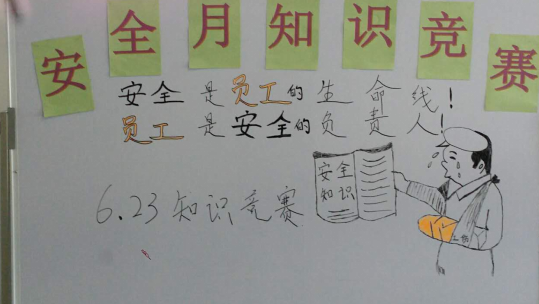 安全月知识竞赛
安全是员工的生命线!
员工是安全的负责人!
安全
知识
6.23知识竞赛